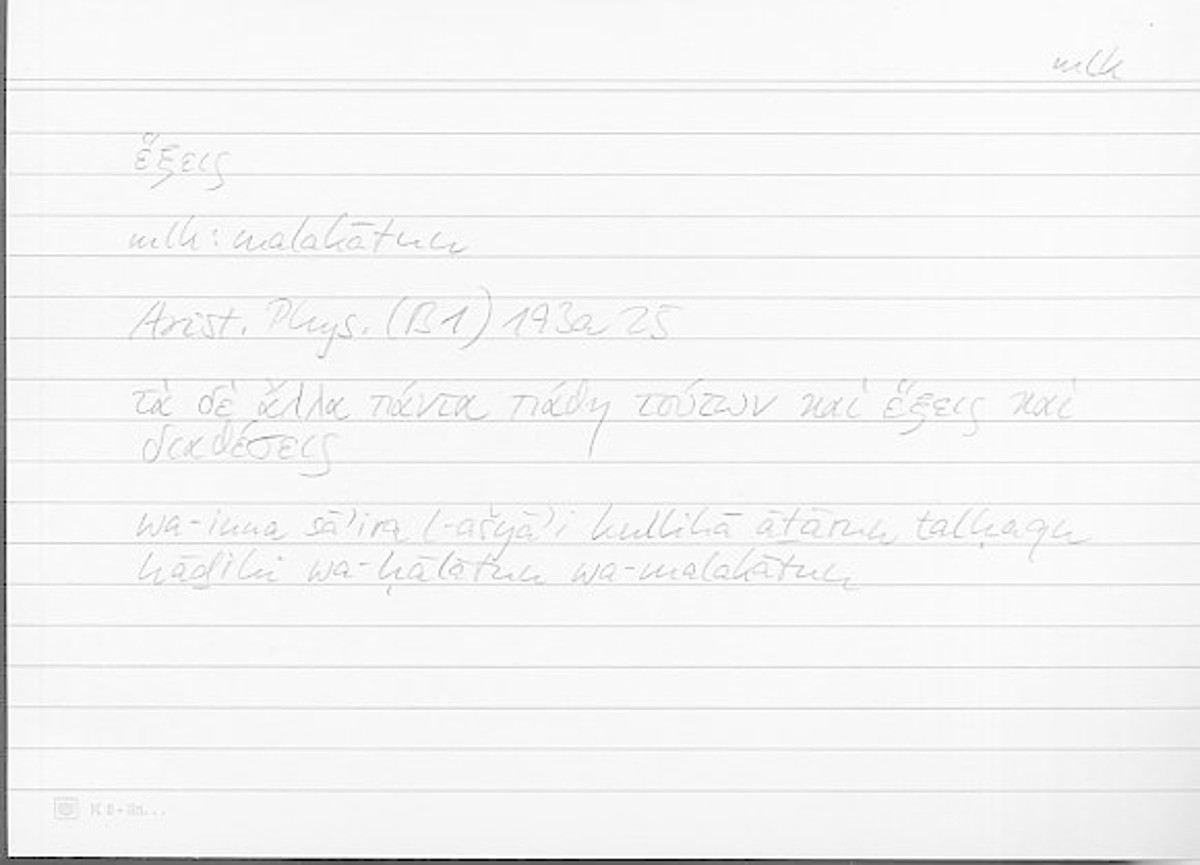 mlk
ἕξεις
mlk: malakātun
Arist. Phys. (B1) 193a 25
τὰ δὲ ἄλλα πάντα πάθη τούτων καὶ ἕξεις καὶ
διαθέσεις
wa-inna sāʾira l-ašyāʾi kullihā āṯārun talḥaqu
hāḏihi wa-ḥālātun wa-malakātun